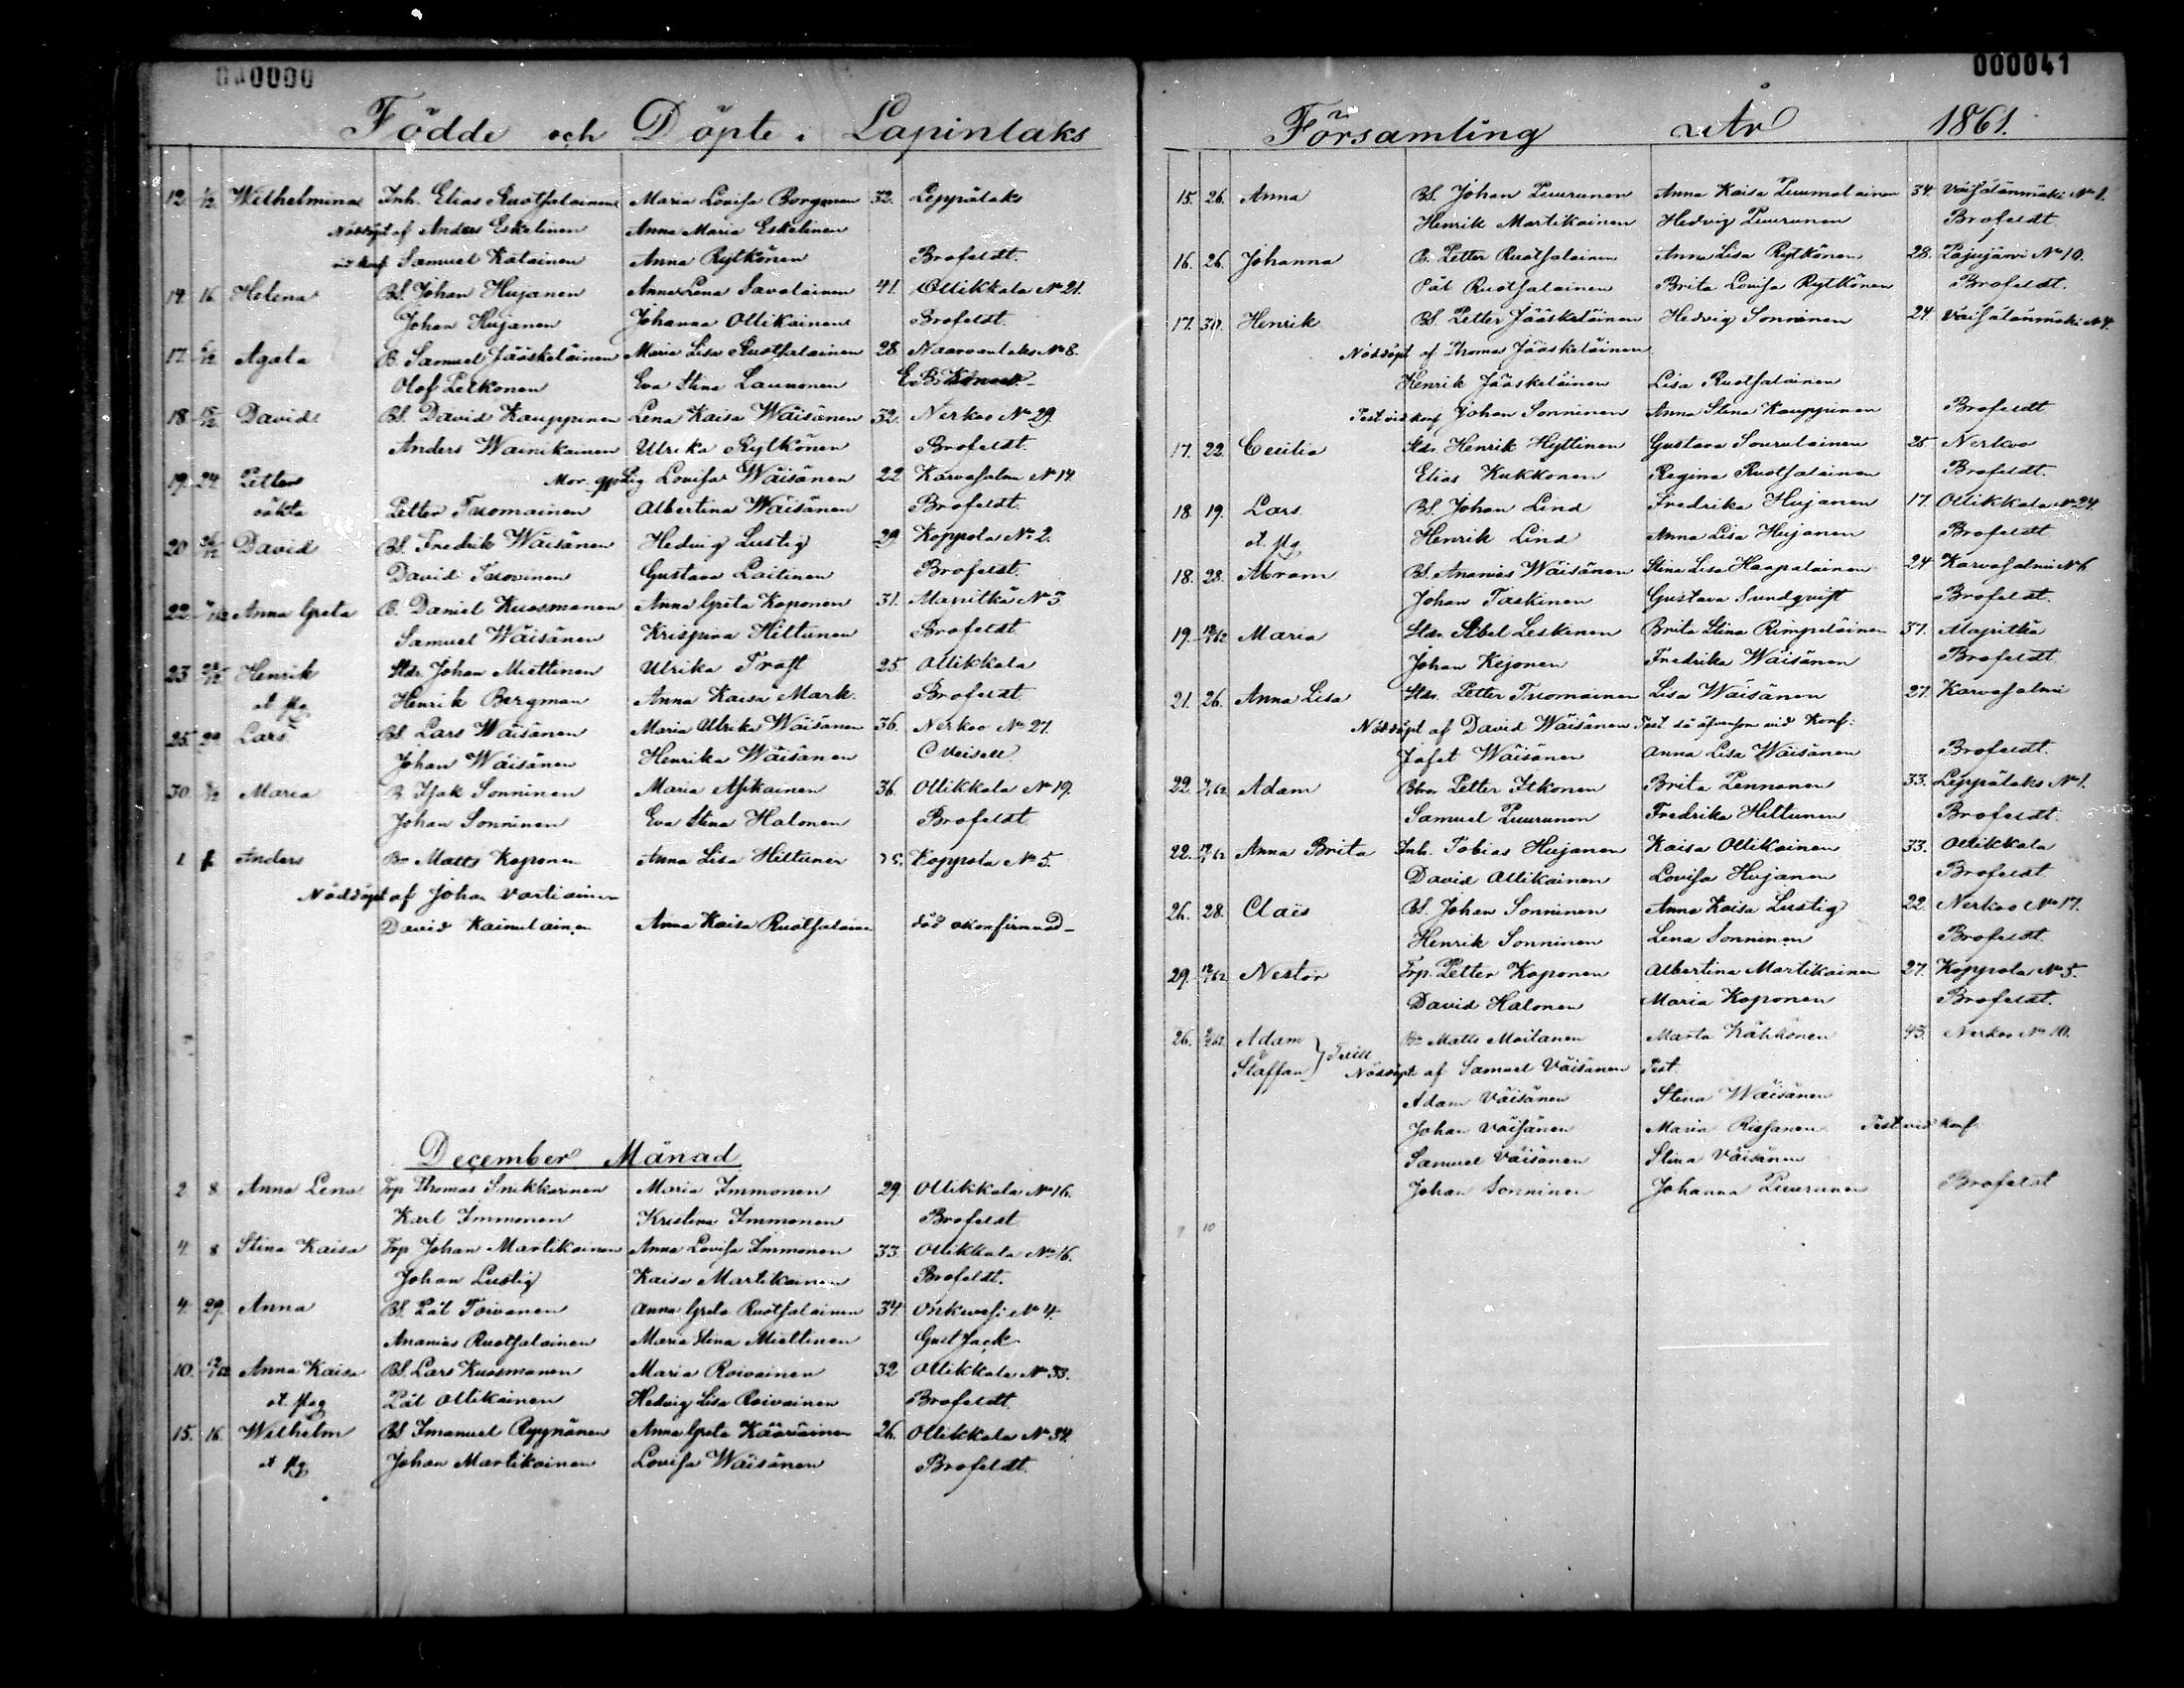 000041
Födde och Döpte i Lapinlaks
12. 1/12 Wilhelmina Inh. Elias Ruotsalainen Maria Lovisa Borgman 32. Leppälaks
Nöddöpt af Anders Eskelinen Anna Maria Eskelinen
vid konf Samuel Katainen Anna Rytkönen Brofeldt.
14. 16. Helena BS. Johan Hujanen Anna Lena Savolainen 41. Ollikkala No 21.
Johan Hujanen Johanna Ollikainen Brofeldt.
17. Agata B. Samuel Jääskeläinen Maria Lisa Ruotsalainen 28. Naarvanlaks No 8.
Olof Pelkonen Eva Stina Launonen
18. 15/12 David BS. David Kauppinen Lena Kaisa Wäisänen 32. Nerkoo No 29.
Anders Wainikainen Ulrika Rytkönen Brofeldt.
19. 24. Petter Mor. Lovisa Wäisänen 22 Karvasalmi No 14.
oäkta Petter Tuomainen Albertina Wäisänen Brofeldt.
20. David BS. Fredrik Wäisänen Hedvig Lustig 29. Koppola No 2.
David Tuovinen Gustava Laitinen Brofeldt.
22. Anna Greta B. Daniel Kuosmanen Anna Greta Koponen 31. Mapitkä No 3
Samuel Wäisänen Krispina Hiltunen Brofeldt.
23. 28/12 Henrik Sldr. Johan Miettinen Ulrika Trast 25. Ollikkala
Henrik Bergman Anna Kaisa Mark. Brofeldt
25. 29. Lars BS. Lars Wäisänen Maria Ulrika Wäisänen 36. Nerkoo No 27.
Johan Wäisänen Henrika Wäisänen C Weisell
30. Maria B. Isak Sonninen Maria Asikainen 36. Ollikkala No 19.
Johan Sonninen Eva Stina Halonen Brofeldt
1 Anders Bn Matts Koponen Anna Lisa Hiltunen Koppola No 5.
Nöddöpt af Johan Vartiainen
David Kainulainen Anna Kaisa Ruotsalainen död okonfirmerad
December Månad
2 8. Anna Lena Trp Thomas Snikkarinen Maria Immonen 29. Ollikkala No 16.
Karl Immonen Kristina Immonen Brofeldt
4. 8 Stina Kaisa Trp Johan Martikainen Anna Lovisa Immonen 33. Ollikkala No 16.
Johan Lustig Kaisa Martikainen Brofeldt.
4. 29. Anna BS. Pål Toivanen Anna Greta Ruotsalainen 34. Onkivesi No 4.
Ananias Ruotsalainen Maria Stina Miettinen Gust Jack
10. Anna Kaisa BS. Lars Kuosmanen Maria Roivainen 32 Ollikkala No 33.
Pål Ollikainen Hedvig Lisa Roivainen Brofeldt.
15. 16. Wilhelm BS Imanuel Ryynänen Anna Greta Kääriäinen 26. Ollikkala No 34.
Johan Martikainen Lovisa Wäisänen Brofeldt.
Församling År 1861.
15. 26. Anna BS. Johan Puurunen Anna Kaisa Puumalainen 34. Väisälänmäki No 1.
Henrik Martikainen Hedvig Puurunen Brofeldt
16. 26. Johanna B. Petter Ruotsalainen Anna Lisa Rytkönen 28. Pajujärvi No 10.
Pål Ruotsalainen Brita Lovisa Rytkönen Brofeldt.
17. 30. Henrik BS. Petter Jääskeläinen Hedvig Sonninen 24. Väisälänmäki No 4.
Nöddöpt af Thomas Jääskeläinen
Henrik Jääskeläinen Lisa Ruotsalainen
Test vid konf Johan Sonninen Anna Stina Kauppinen Brofeldt
17. 22. Cecilia Sldr. Henrik Hyttinen Gustava Sourulainen 25 Nerkoo
Elias Kukkonen Regina Ruotsalainen Brofeldt.
18. 19. Lars BS. Johan Lind Fredrika Hujanen 17. Ollikkala No 24.
Henrik Lind Anna Lisa Hujanen Brofeldt
18. 28. Abram BS. Ananias Wäisänen Stina Lisa Haapalainen 24 Karvasalmi No 6
Johan Taskinen Gustava Sundqvist Brofeldt.
19. Maria Sldr. Abel Leskinen Brita Stina Rimpeläinen 37. Mapitkä
Johan Kejonen Fredrika Wäisänen Brofeldt
21. 26. Anna Lisa Sldr. Petter Tuomainen Lisa Wäisänen 27. Karvasalmi
Nöddöpt af David Wäisänen Test vid Konf:
Jafet Wäisänen Anna Lisa Wäisänen Brofeldt.
22. Adam Petter Itkonen Brita Pennanen 33. Leppälaks No 1.
Samuel Puurunen Fredrika Hiltunen Brofeldt.
22. Anna Brita Inh. Tobias Hujanen Kaisa Ollikainen 33. Ollikkala
David Ollikainen Lovisa Hujanen Brofeldt
26. 28. Claës BS. Johan Sonninen Anna Kaisa Lustig 22. Nerkoo No 17.
Henrik Sonninen Lena Sonninen Brofeldt.
29. Nestor Trp. Petter Koponen Albertina Martikainen 27. Koppola No 5.
David Halonen Maria Koponen Brofeldt.
26. Adam Bn Matts Moilanen Marta Kähkönen 43. Nerkoo No 10.
Staffan } Tvill Nöddöpt af Samuel Väisänen Test.
Adam Väisänen Stina Wäisänen
Johan Väisänen Maria Rissanen Test vid konf.
Samuel Väisänen Stina Väisänen
Johan Sonninen Johanna Puurunen Brofeldt